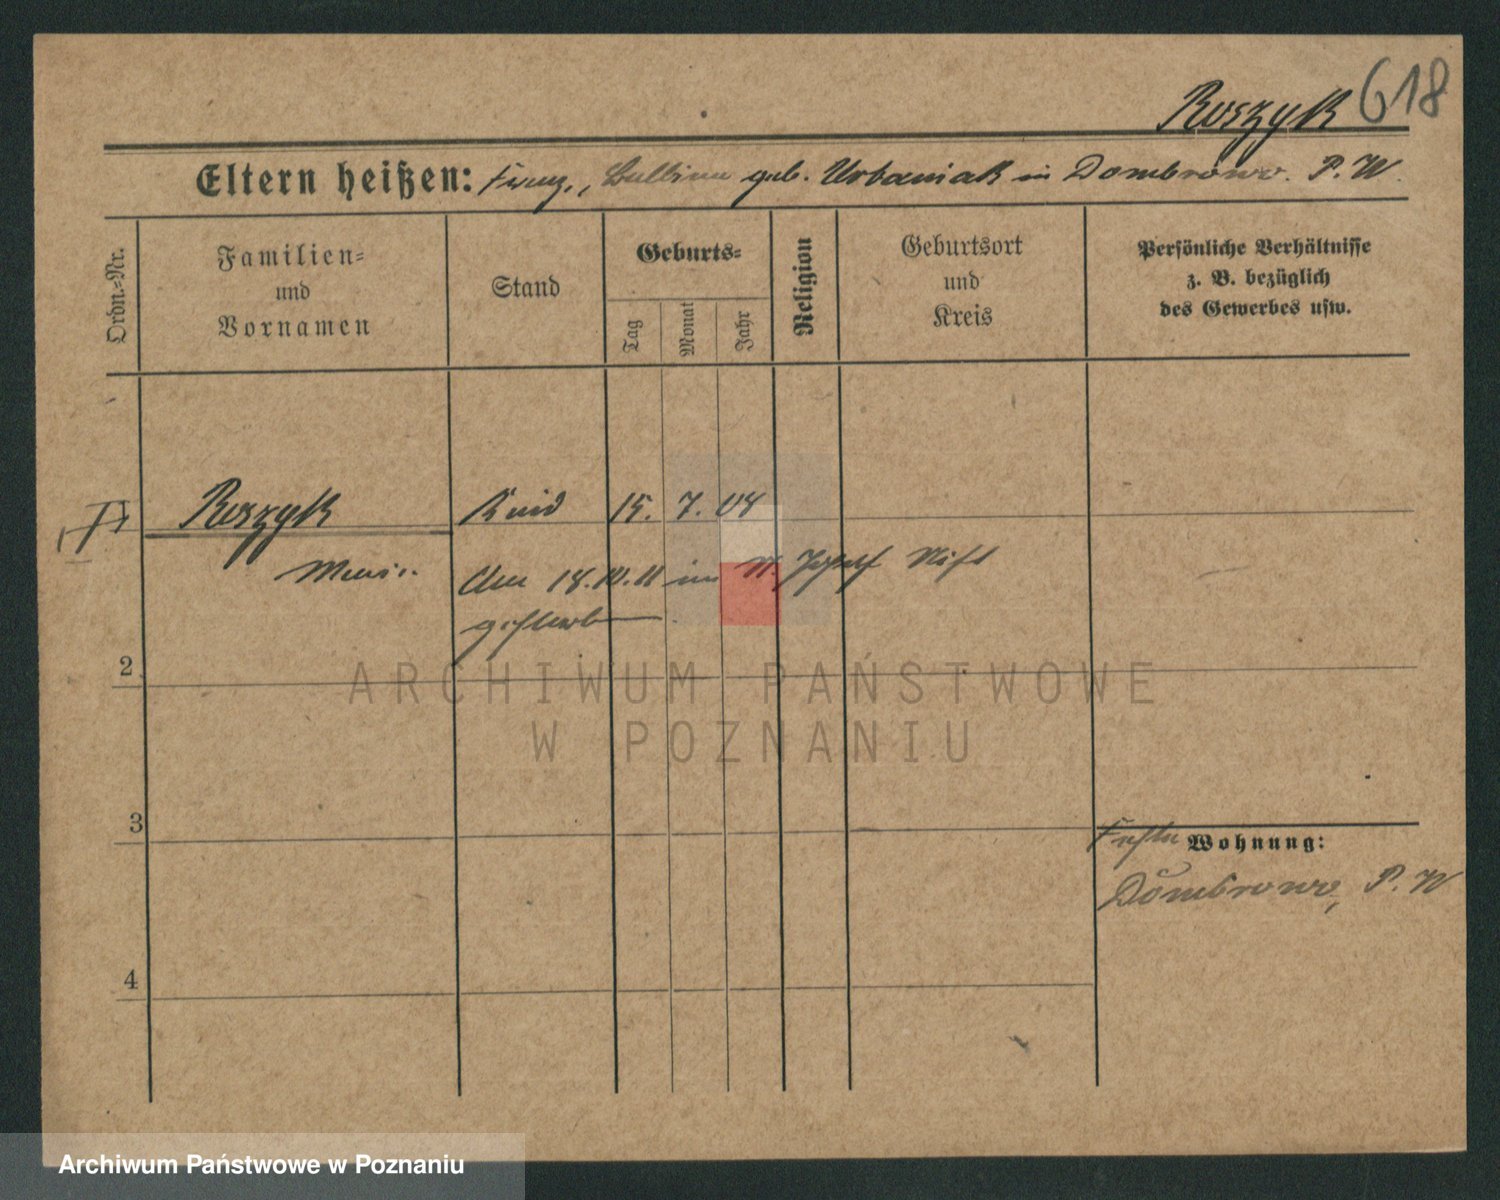 Ruszyk 618
Eltern heißen: Franz, Balbina geb. Urbaniak in Dombrowo. P. W.
Ordn.-Nr.
Familien-
und
Vornamen
Stand
Geburts-
Tag
Monat
Jahr
Religion
Geburtsort
und
Kreis
Persönliche Verhältnisse
z. B. bezüglich
des Gewerbes usw.
Ruszyk Kind 15. 7. 08
Am 18. 10. 11 im St. Josef Stift
gestorben
2
ARCHIWUM PAŃSTWOWE
W POZNANIU
3
Wohnung:
Dombrowo, P. W
4
Archiwum Państwowe w Poznaniu